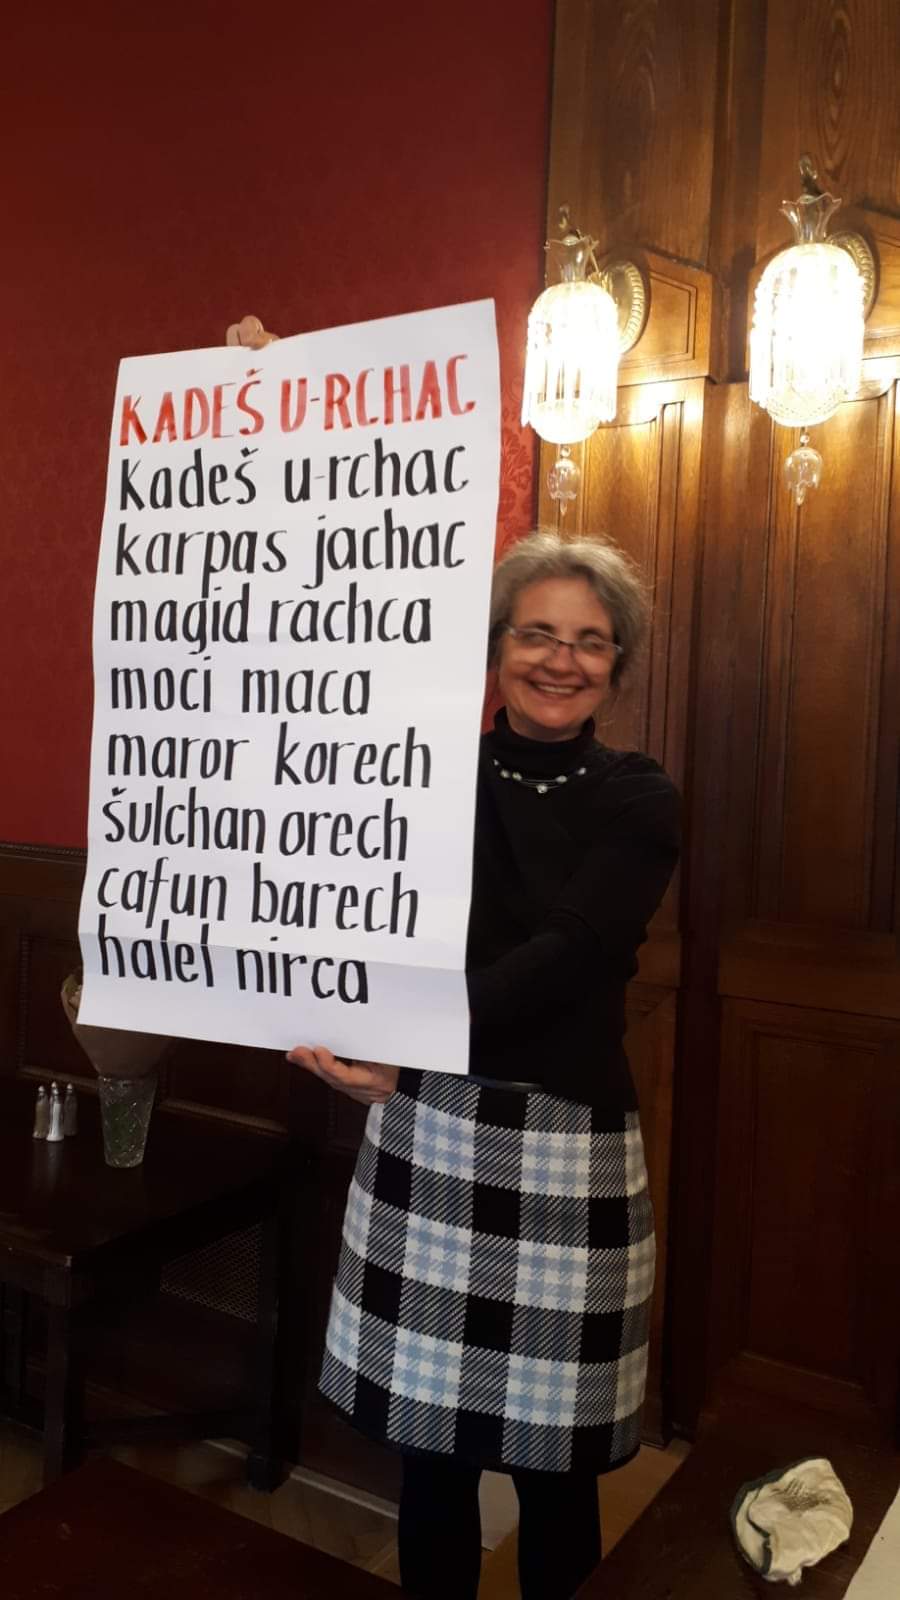 KADEŠ U-RCHAC
Kadeš u-rchac
karpas jachac
magid rachca
moci maca
maror korech
šulchan orech
cafun barech
halel nirca